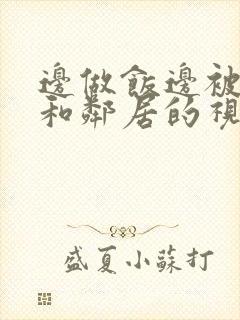 邊做飯邊被
和鄰居的視
盛夏小蘇打